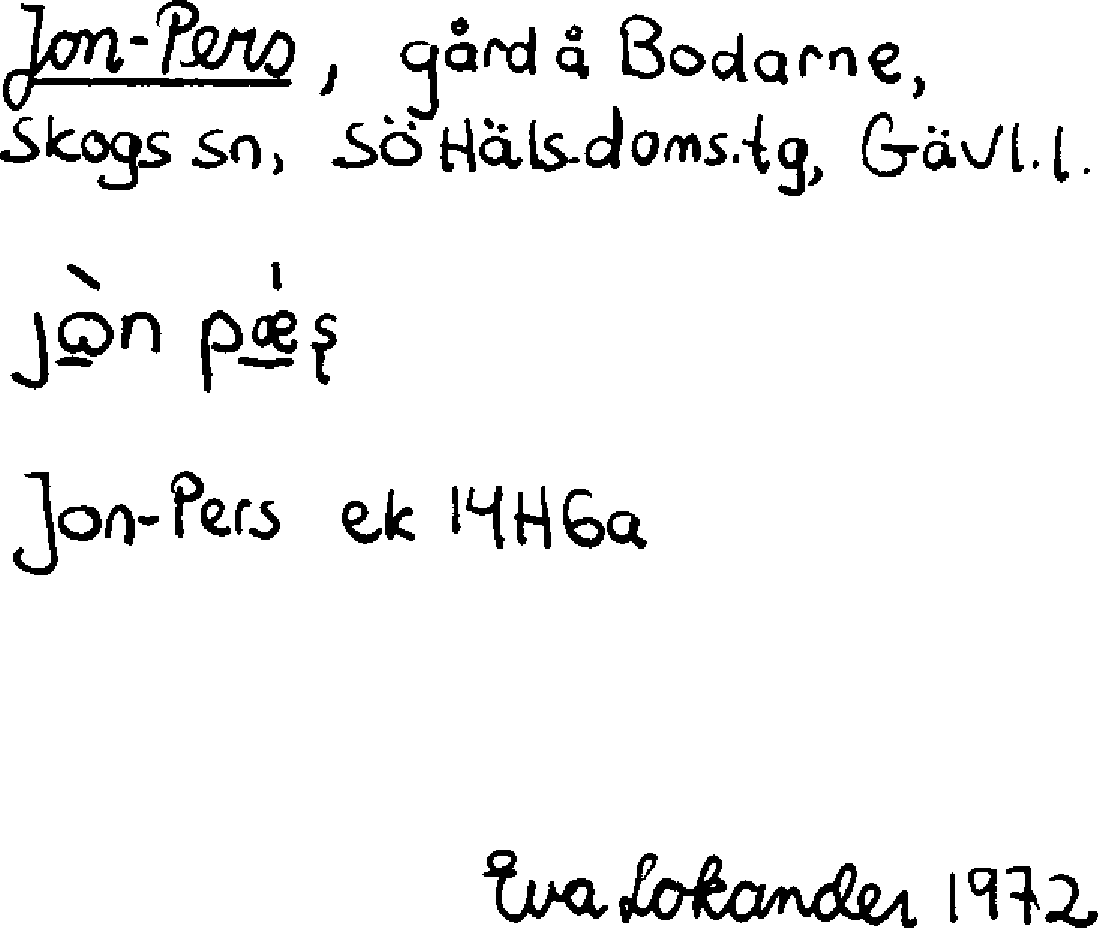 Jon-Pers, gård å Bodarne,
Skogs sn, Sö Häls.doms.tg, Gävl.l.
jὼn pǽʂ
Jon-Pers ek 14H6a
Eva Lokander 1972